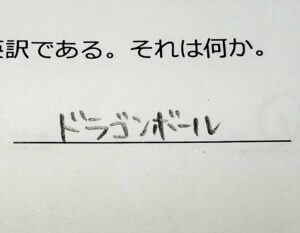 訳である。それは何か。
ドラゴンボール